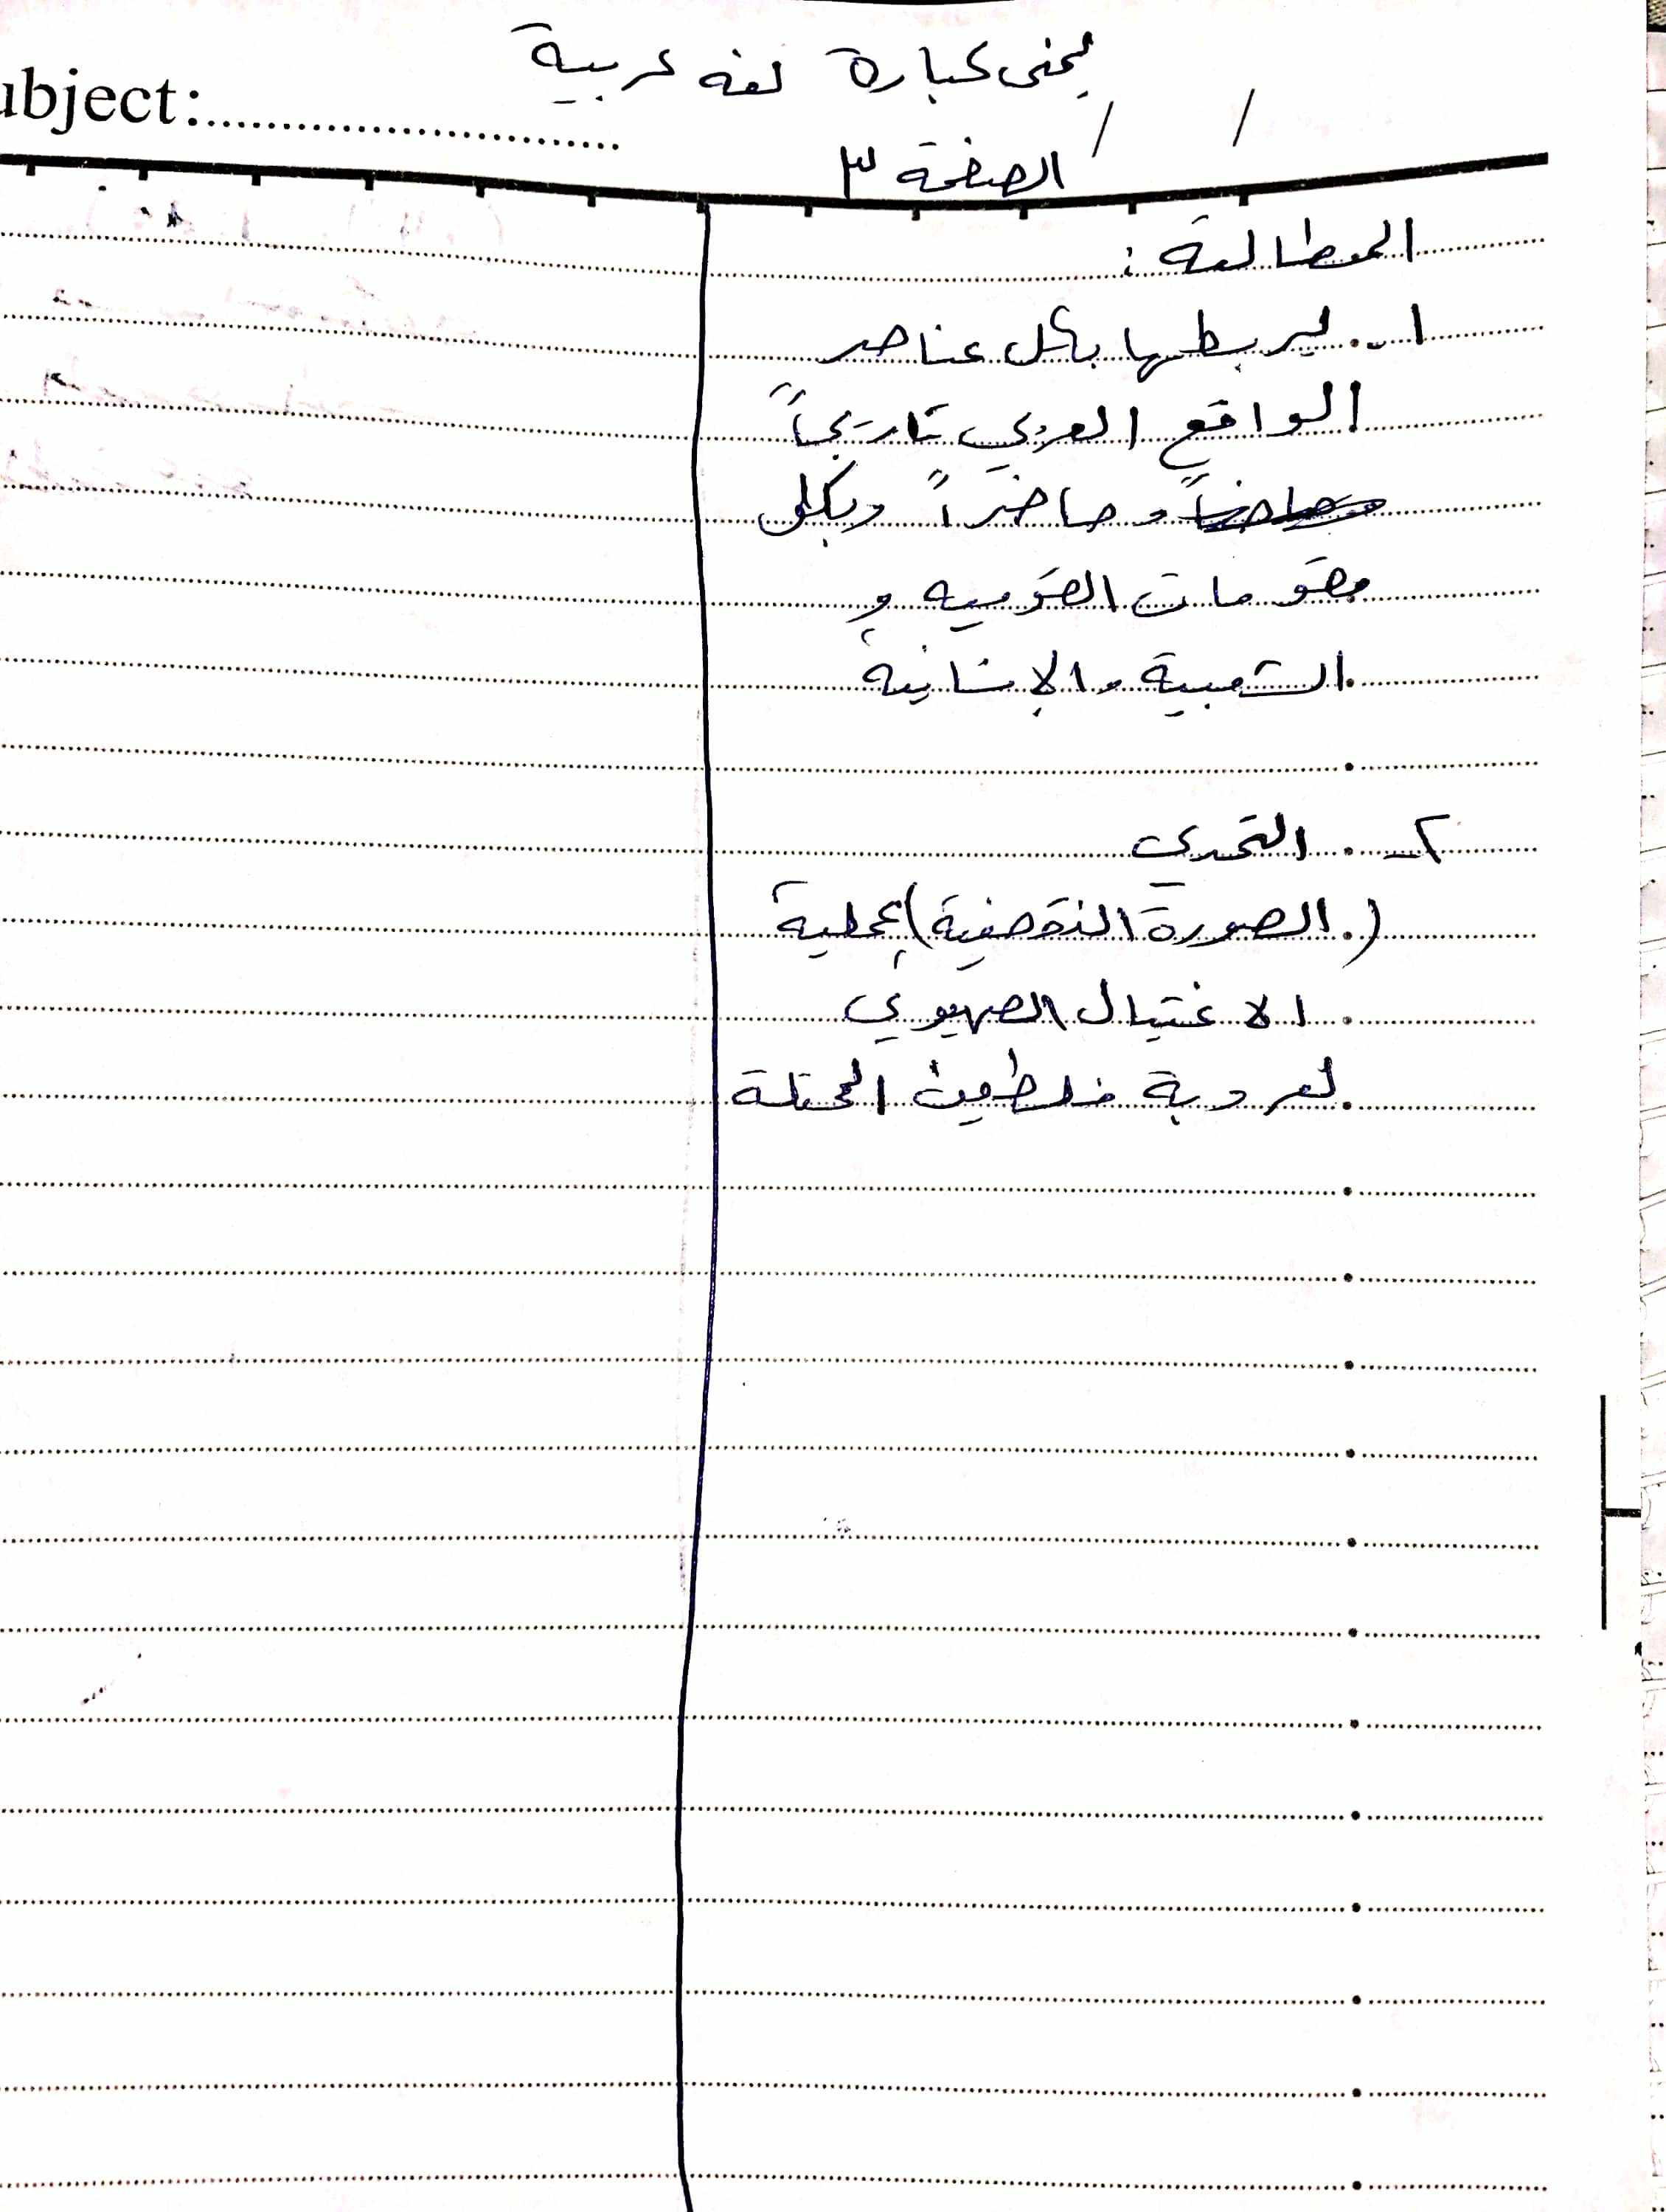 يمنى عبارة لغه عربية
ubject:
الصفحة ٣
المطالعة :
١ - ليربطها بكل عناصر
الواقع العربي تاريخاً
وحاضراً وبكل
مقومات القوميه و
الشعبية والإنسانية
٢ - التحدي
(الصورة النقضية) لعملية
الاغتيال الصهيوني
لعروبة فلسطين المحتلة